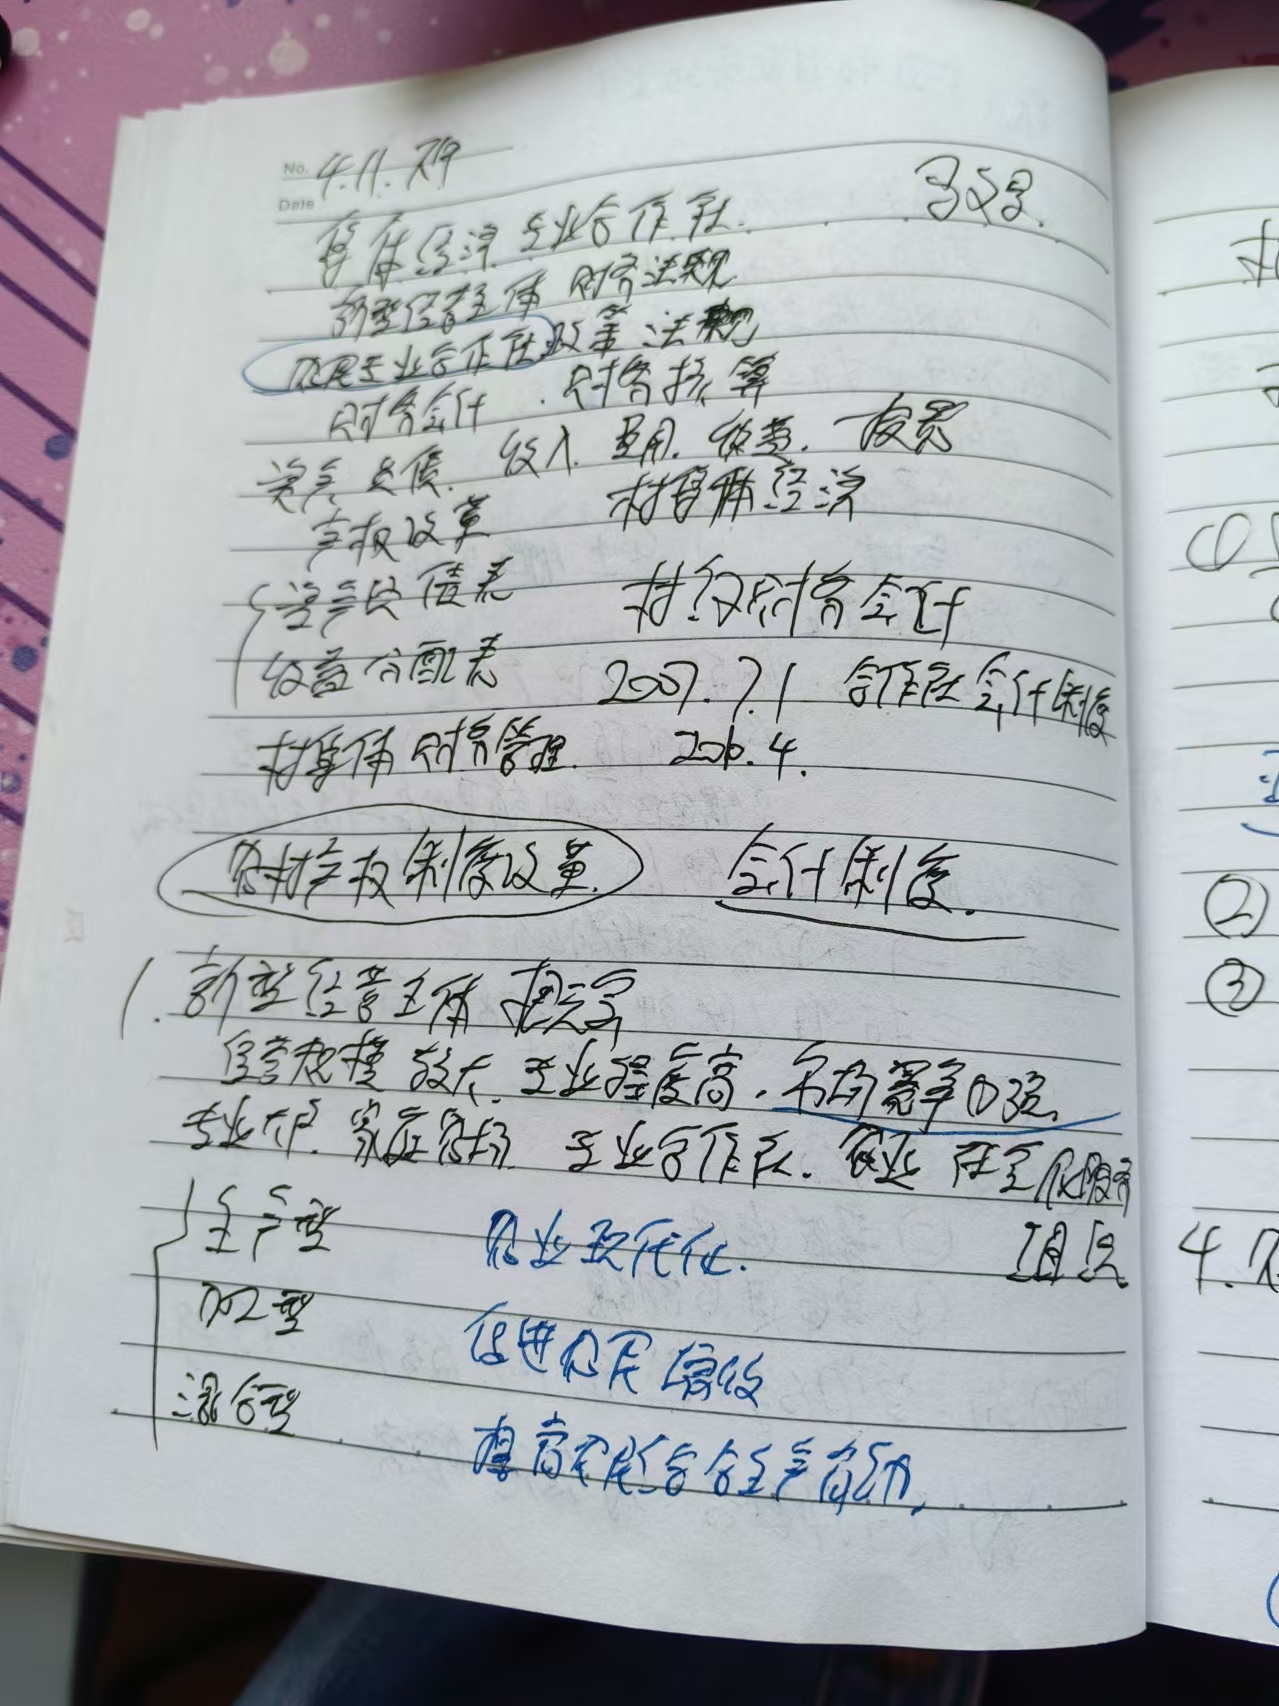 No. 4.11.
Date
集体经济 专业合作社.
新型经营主体 财务法规
农民专业合作社政策法规
财务会计 . 财务核算
资产 负债. 收入. 费用. 收益. 投资
产权改革 村集体经济
资产负债表 村级财务会计
收益分配表 2007.7.1 合作社会计制度
村集体财务管理.
农村产权制度改革. 会计制度.
1. 新型经营主体
经营规模较大. 专业程度高. 市场竞争力强.
专业大户. 家庭农场. 专业合作社. 农业 社会化服务
生产型 农业现代化. 组织
加工型 促进农民增收
混合型 提高农民综合生产能力.
①
②
③
4.